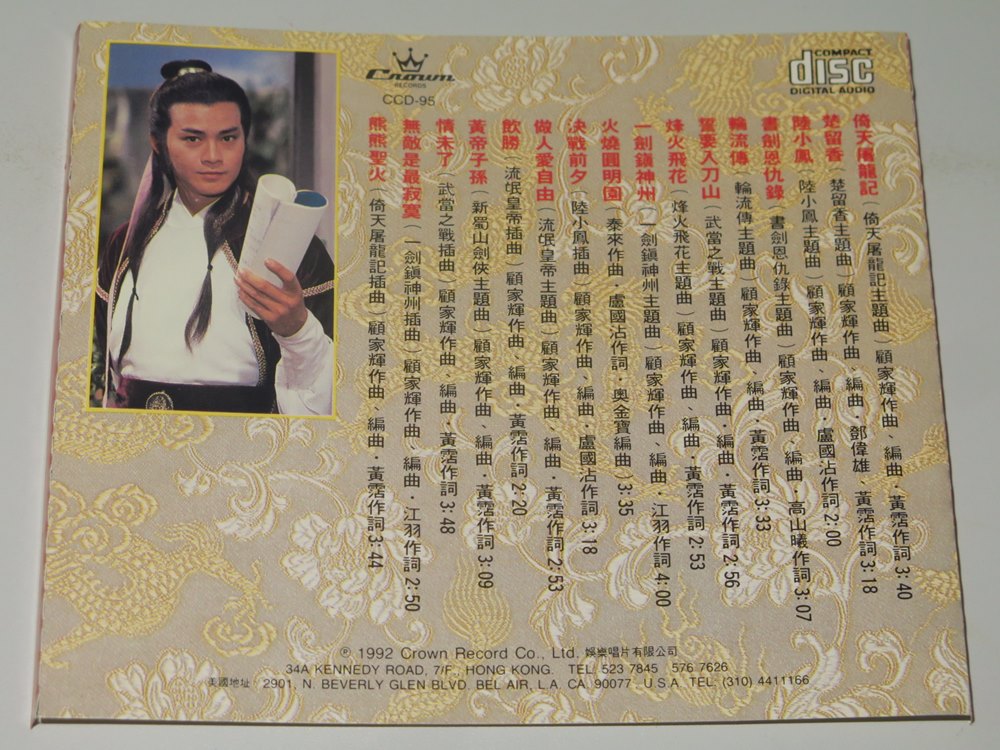 Crown
RECORDS
CCD-95
COMPACT
disc
DIGITAL AUDIO
倚天屠龍記(倚天屠龍記主題曲)顧家輝作曲、編曲·黃霑作詞3:40
楚留香(楚留香主題曲)顧家輝作曲、編曲·鄧偉雄、黃霑作詞3:18
陸小鳳(陸小鳳主題曲)顧家輝作曲、編曲·盧國沾作詞2:00
書劍恩仇錄(書劍恩仇錄主題曲)顧家輝作曲、編曲·高山曦作詞3:07
輪流傳(輪流傳主題曲)顧家輝作曲、編曲·黃霑作詞3:33
誓要入刀山(武當之戰主題曲)顧家輝作曲、編曲·黃霑作詞2:56
烽火飛花(烽火飛花主題曲)顧家輝作曲、編曲·黃霑作詞2:53
一劍鎮神州(一劍鎮神州主題曲)顧家輝作曲、編曲·江羽作詞4:00
火燒圓明園(泰來作曲·盧國沾作詞·奧金寶編曲)3:35
決戰前夕(陸小鳳插曲)顧家輝作曲、編曲·盧國沾作詞3:18
做人愛自由(流氓皇帝主題曲)顧家輝作曲、編曲·黃霑作詞2:53
飲勝(流氓皇帝插曲)顧家輝作曲、編曲·黃霑作詞2:20
黃帝子孫(新蜀山劍俠主題曲)顧家輝作曲、編曲·黃霑作詞3:09
情未了(武當之戰插曲)顧家輝作曲、編曲·黃霑作詞3:48
無敵是最寂寞(一劍鎮神州插曲)顧家輝作曲、編曲·江羽作詞2:50
熊熊聖火(倚天屠龍記插曲)顧家輝作曲、編曲·黃霑作詞3:44
℗ 1992 Crown Record Co., Ltd. 娛樂唱片有限公司
34A KENNEDY ROAD, 7/F., HONG KONG. TEL: 523 7845 576 7626
美國地址: 2901, N. BEVERLY GLEN BLVD. BEL AIR, L.A. CA. 90077 U.S.A. TEL: (310) 4411166